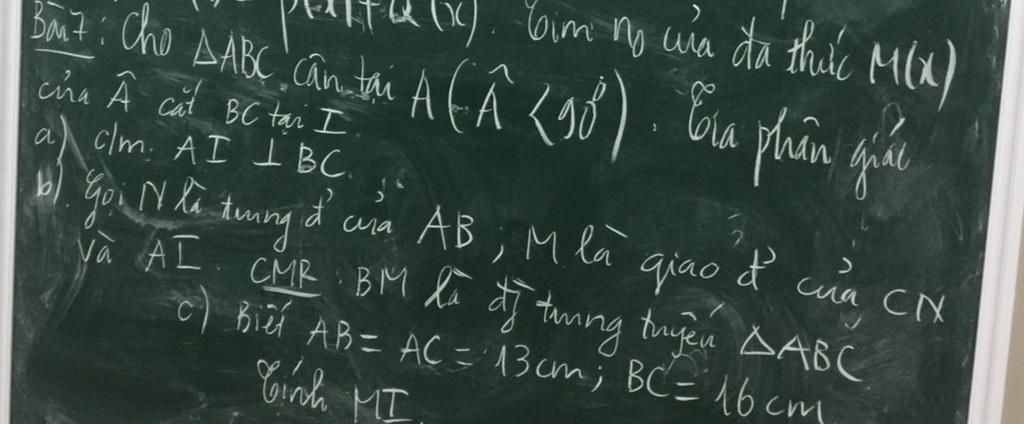 P(x)+Q(x). Tìm no của đa thức M(x)
Bài 7: Cho △ABC cân tại A (Â < 90°). Tia phân giác
của Â cắt BC tại I
a) c/m: AI ⊥ BC.
b) Gọi N là trung đ' của AB, M là giao đ' của CN
và AI. CMR: BM là đg trung tuyến △ABC
c) Biết AB = AC = 13cm; BC = 16cm
Tính MI.